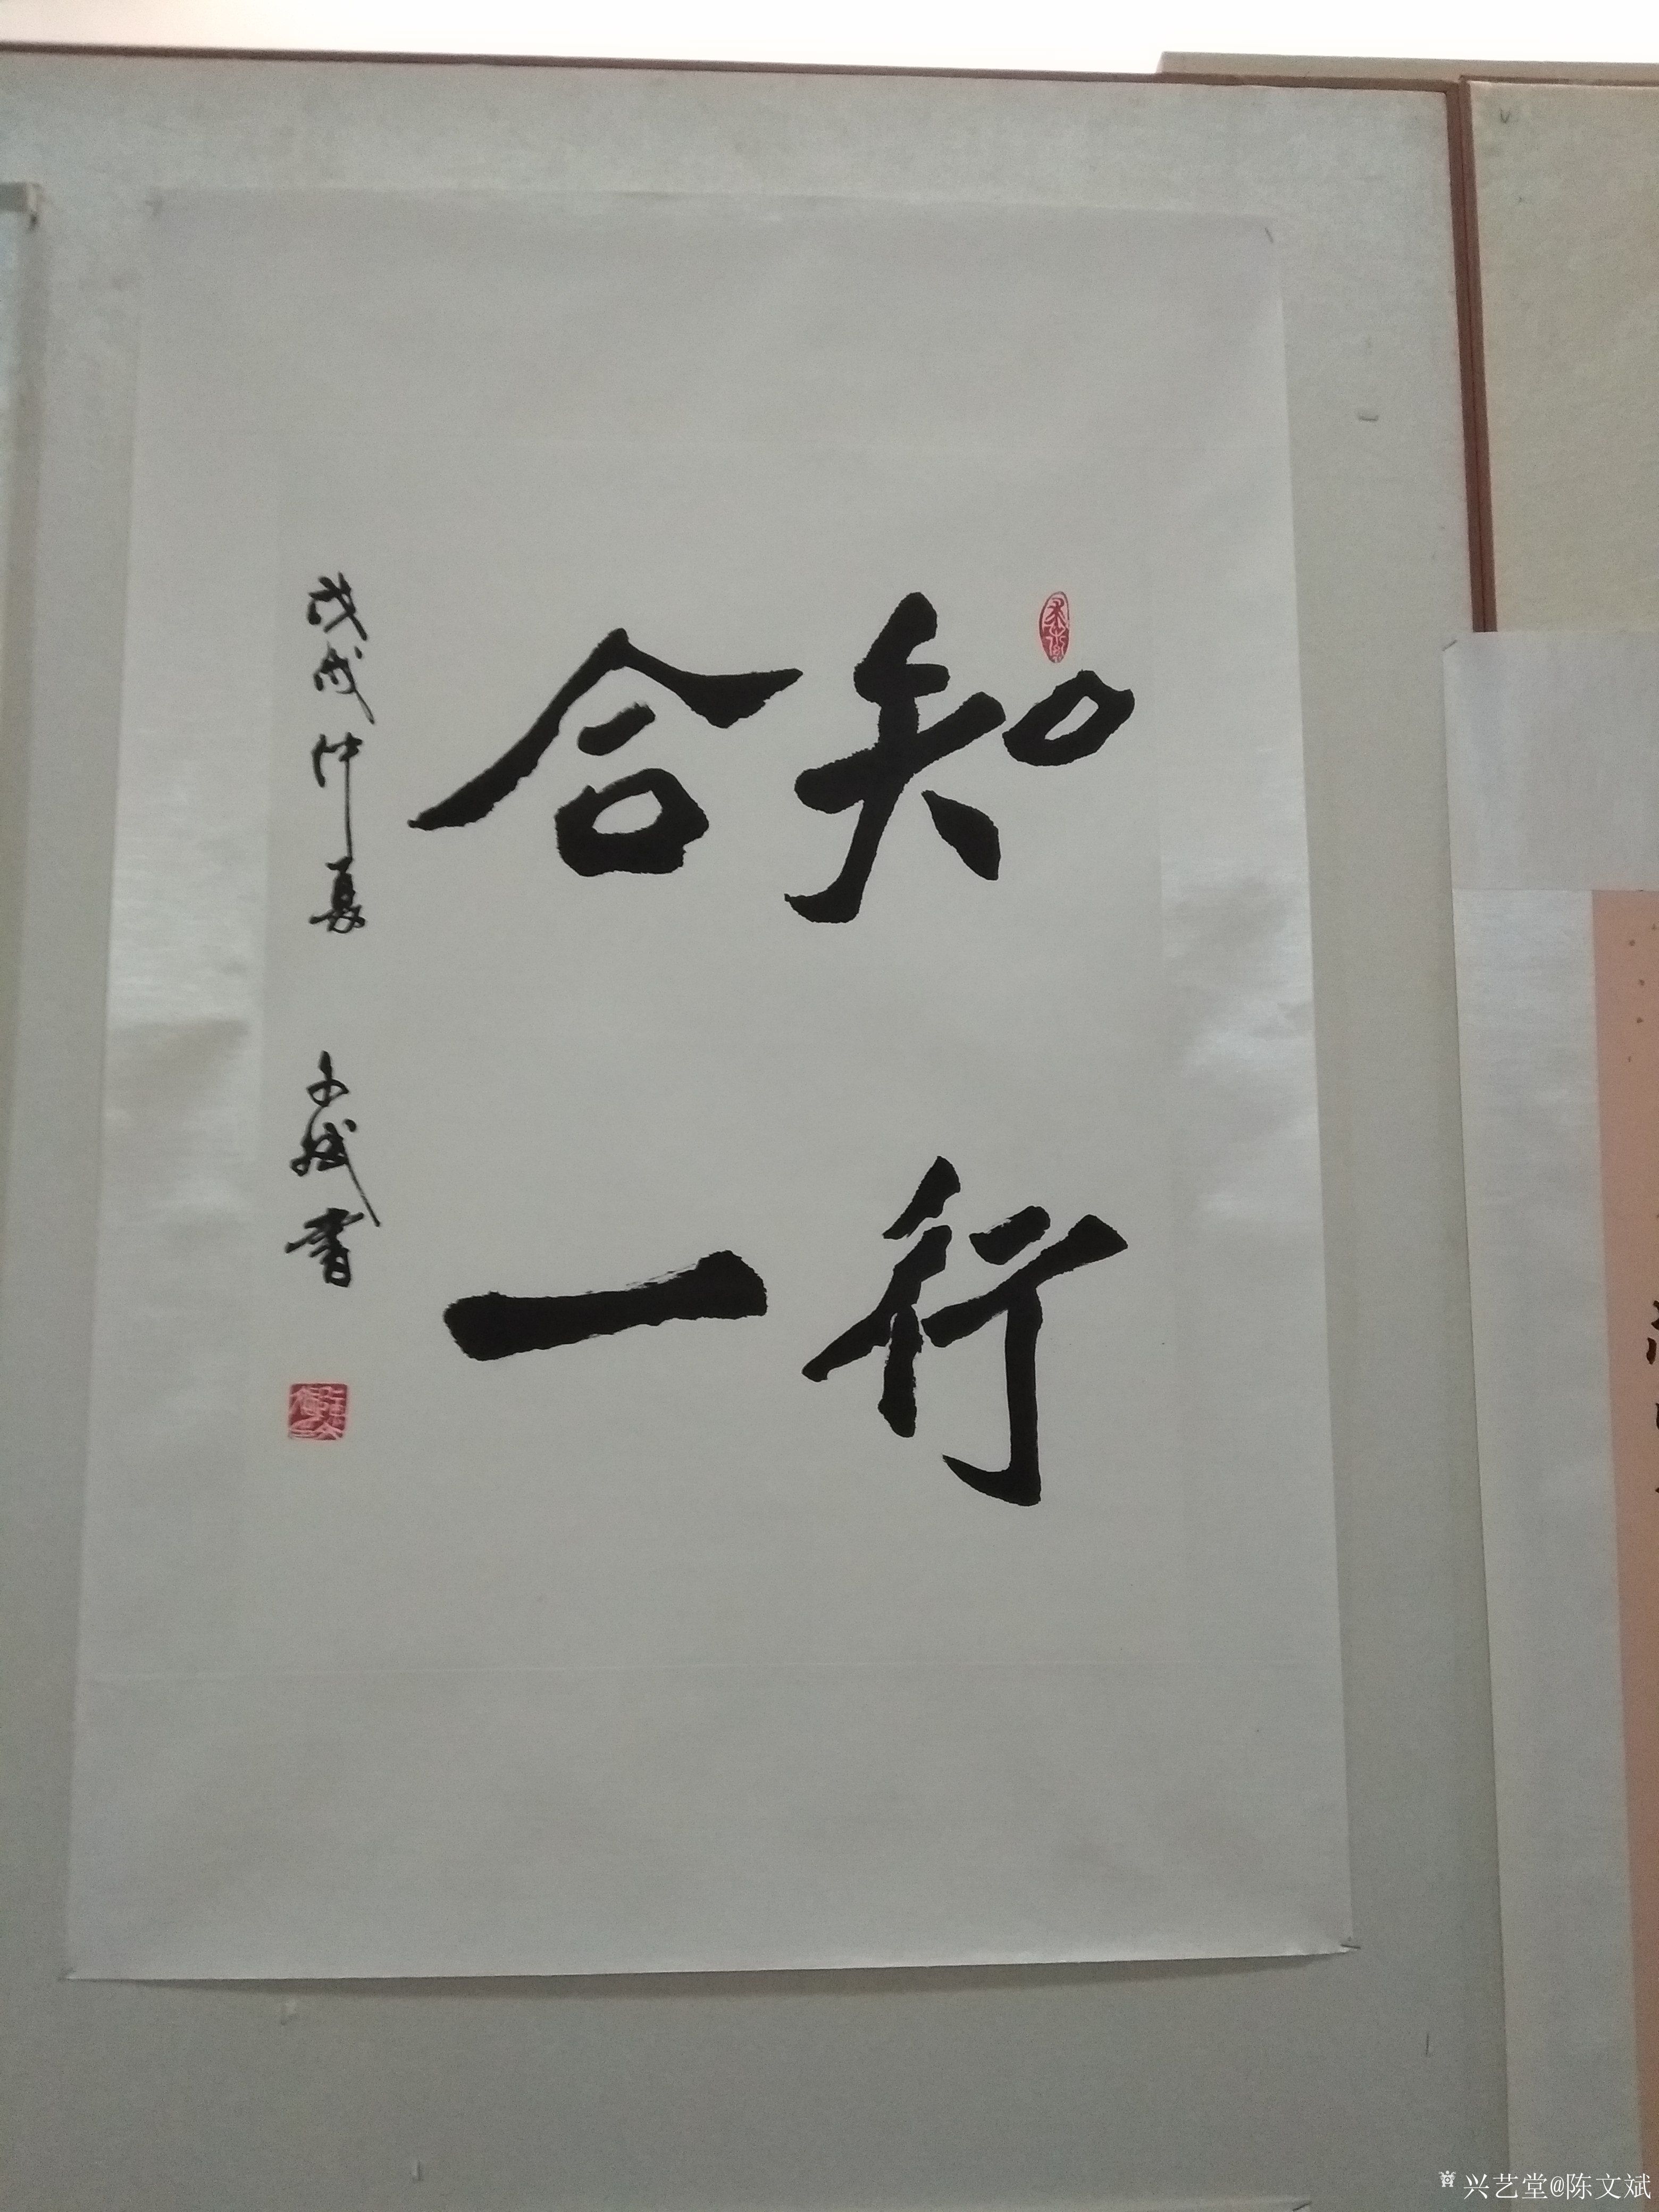 知行
合一
戊戌仲夏 文斌書
兴艺堂@陈文斌